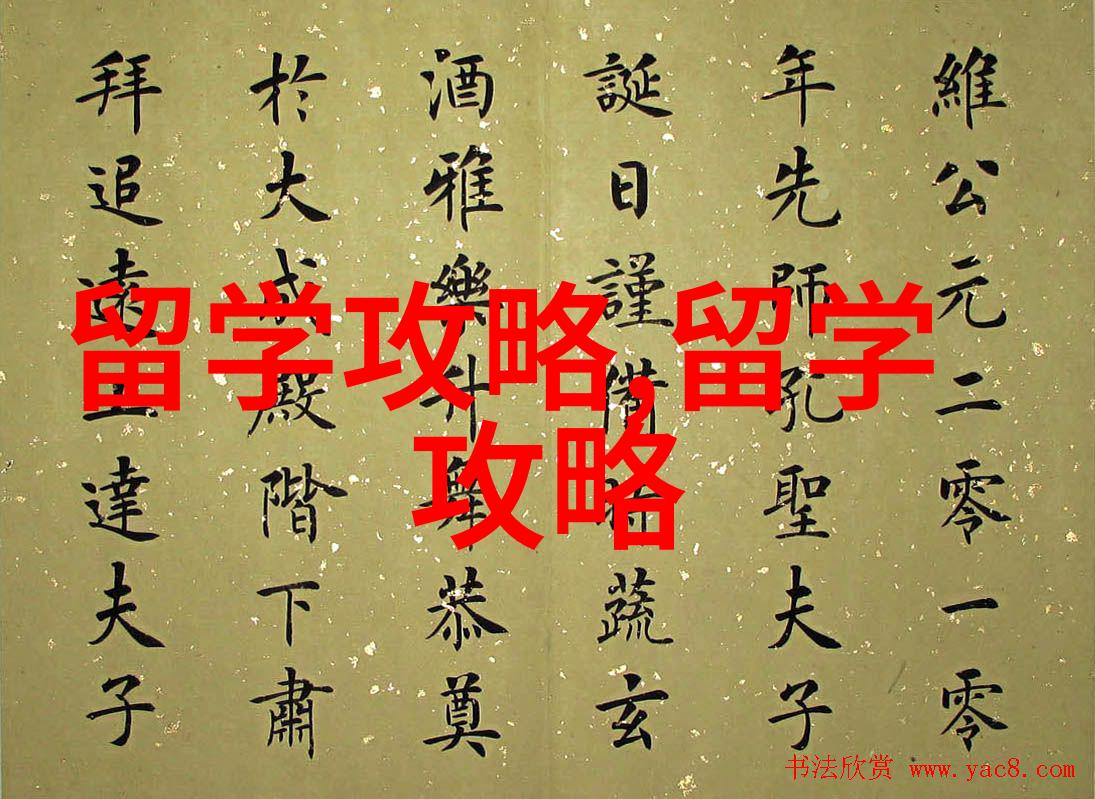 維公元二零一零
年先師孔聖夫子
誕日謹備蔬玄
酒雅樂升舞恭奠
於大成殿階下肅
拜追遠上達夫子
留学攻略,留学
攻略
书法欣赏 www.yac8.com